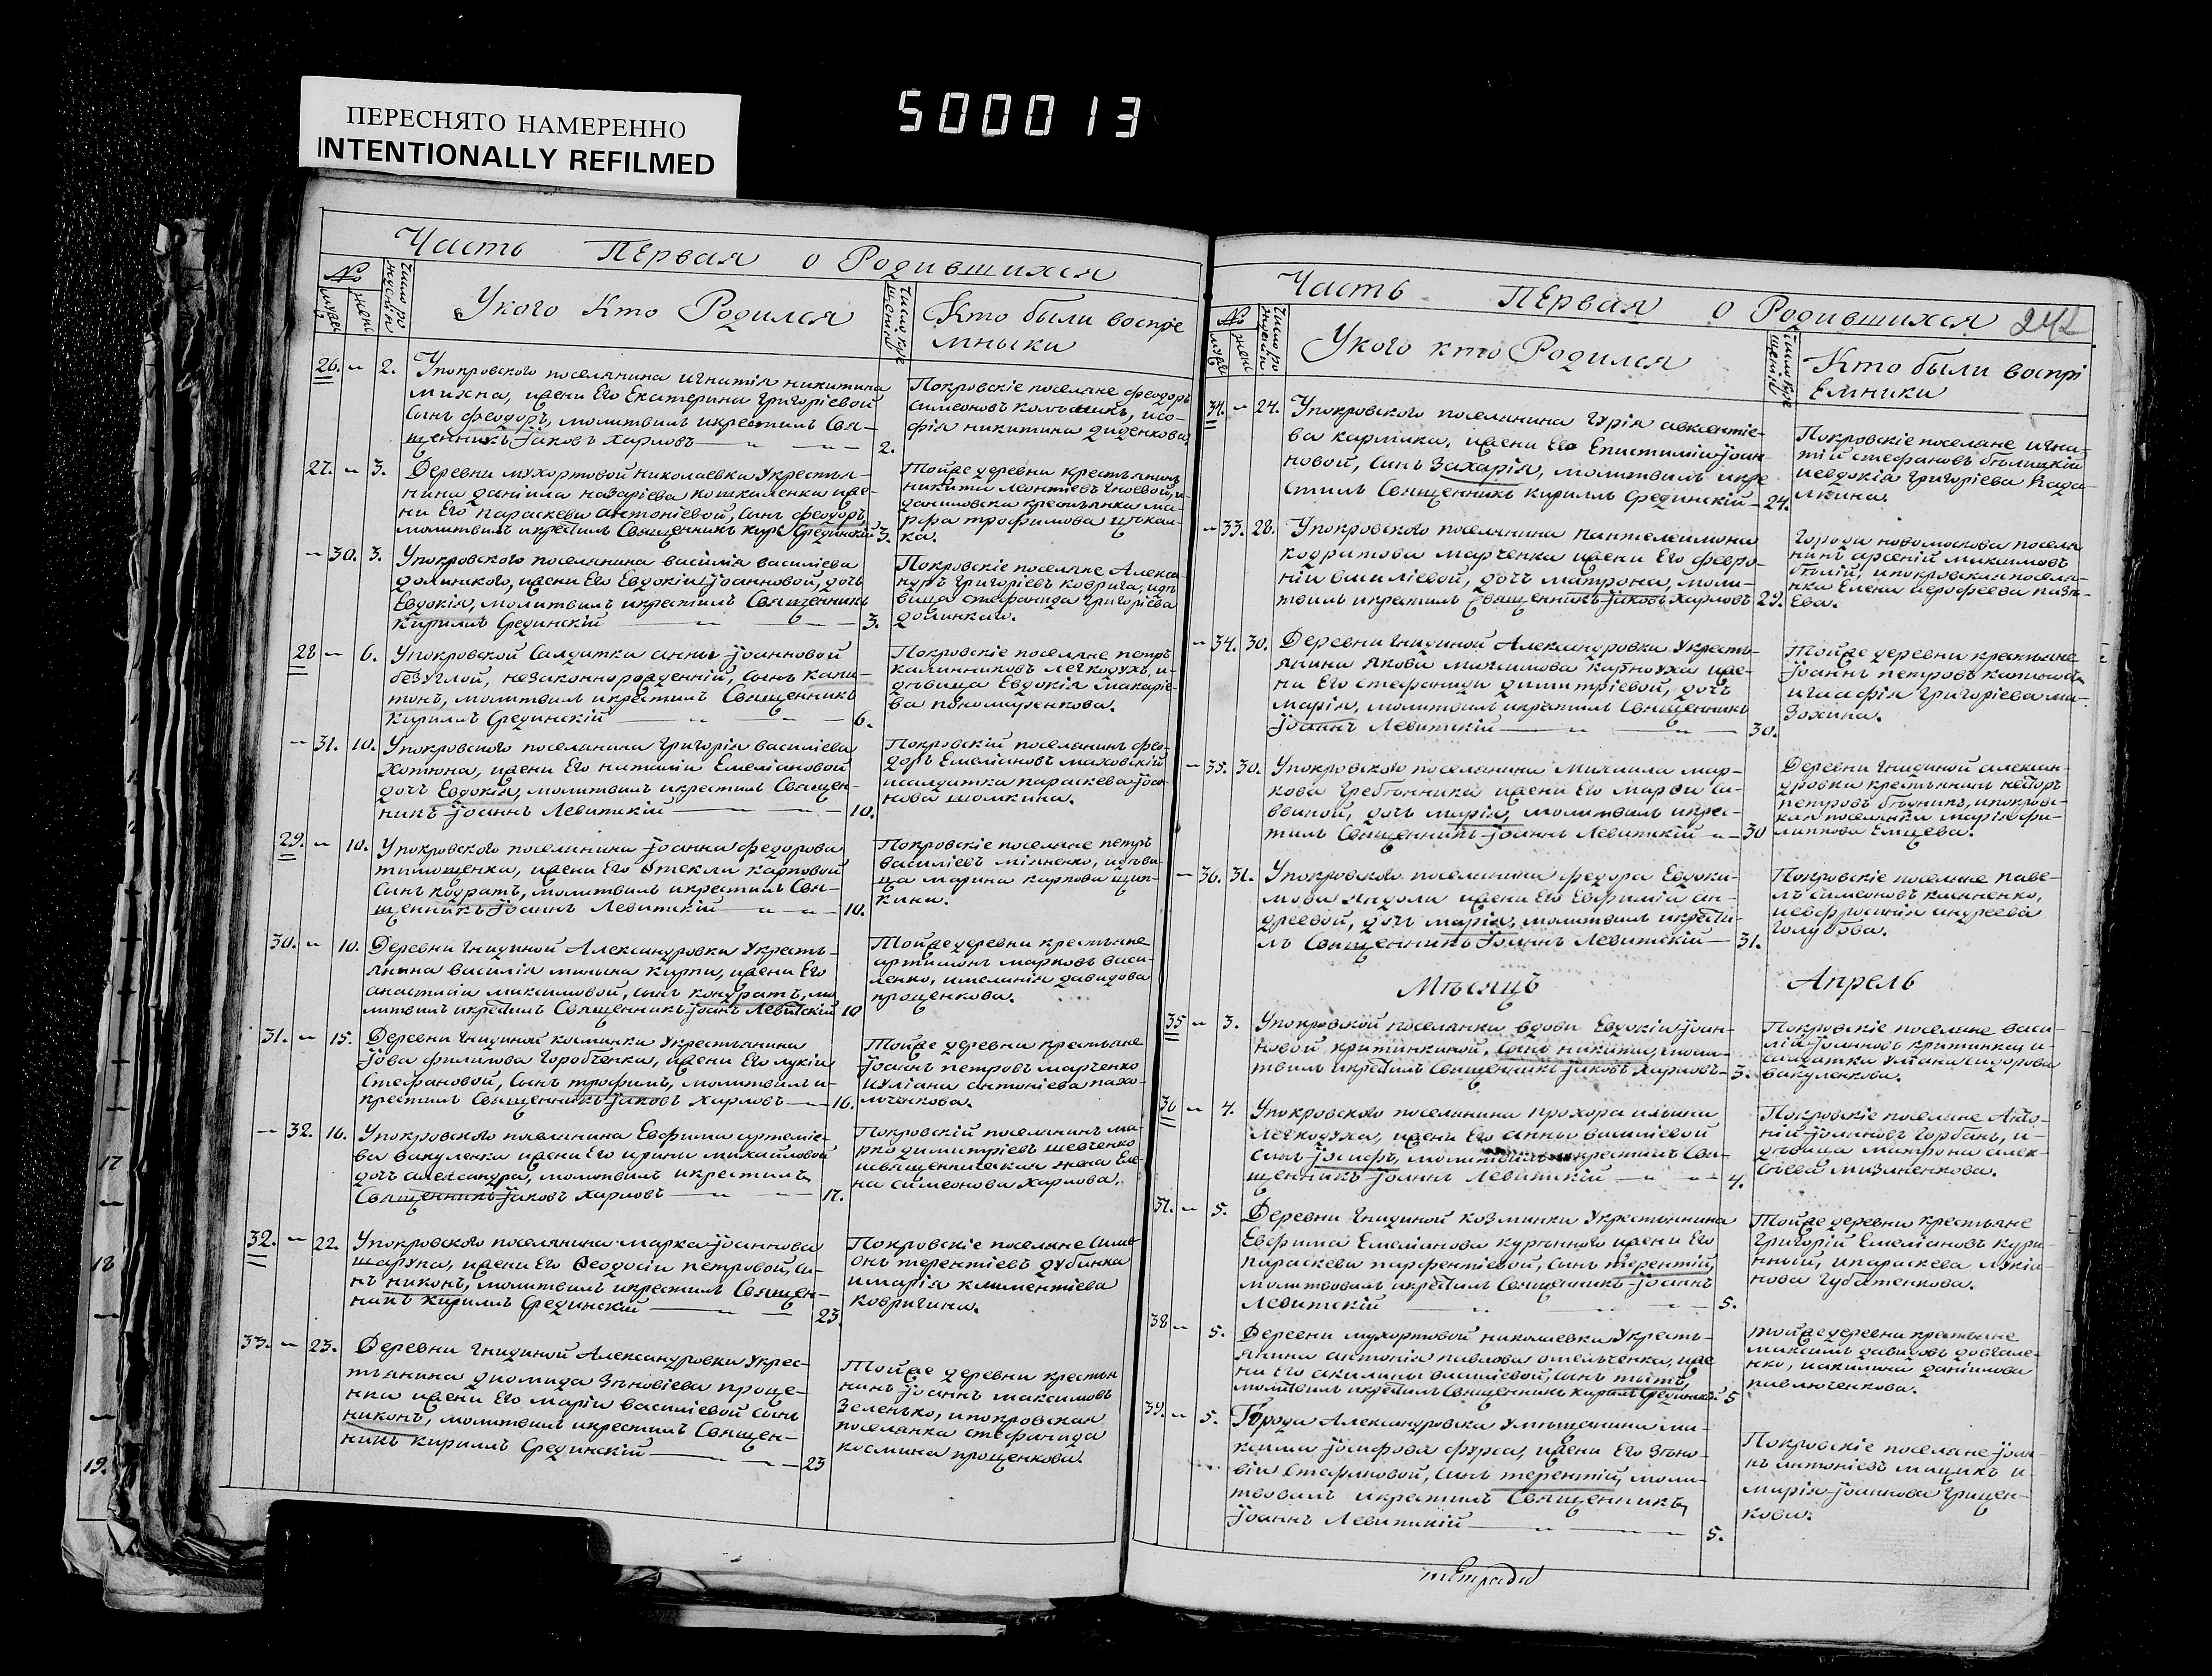 ПЕРЕСНЯТО НАМЕРЕННО
INTENTIONALLY REFILMED
500013
Часть Первая о Родившихся
№
Укого Кто Родился
Кто были воспрiе
мныки
26. - 2. Упокровского поселянина игнатiя никитина
михна, ижени Его Екатерина Григорiевой
Сынъ феодоръ, молитвилъ икрестилъ Свя-
щенникъ Jаковъ Харловъ 2.
Покровскiе поселяне феодоръ
Симеоновъ исо-
фiя никитина диденкова
27. - 3. Деревни мухортовой николаевки Укрестья-
нина данiила назарiева кошкаленка иже-
ни Его параскева антонiевой, Сынъ феодоръ,
молитвилъ икрестилъ Священникъ Кир: Срединскiй 3.
Тойже деревни крестьянинъ
никита леонтiевъ гноевой, и
даниловска крестьянка ма-
рфа трофимова
ка.
- 30. 3. Упокровского поселянина василiя василiева
долинского, ижени Его Евдокiи Jоанновой, дочь
Евдокiя, молитвилъ икрестилъ Священникъ
Кирилъ Срединскiй 3.
Покровскiе поселяне Алекса
ндръ Григорiевъ коврига, идѣ
вица стефанида Григорiева
долинкая.
28 - 6. Упокровской Салдатки анны Jоанновой
безуглой, незаконнорожденнiй, Сынъ капи-
тонъ, молитвилъ икрестилъ Священникъ
Кирилъ Срединскiй 6.
Покровскiе поселяне петръ
калинниковъ легкодухъ, и-
дѣвица Евдокiя Макарiе-
ва пономаренкова.
- 31. 10. Упокровского поселянина Григорiя василiева
Хотюна, ижени Его наталiи Емелiановой
дочь Евдокiя, молитвилъ икрестилъ Священ-
никъ Jоаннъ Левитскiй 10.
Покровскiй поселянинъ фео-
доръ Емелiановъ маховскiй
исалдатка параскева Jоан-
нова шомкина.
29. - 10. Упокровского поселянина Jоанна федорова
тимошенка, ижени Его Ѳтекли карповой
Сынъ кодратъ, молитвилъ икрестилъ Свя-
щенникъ Jоаннъ Левитскiй 10.
Покровскiе поселяне петръ
василiевъ мiяненко, идѣви-
ца марина карпова щип-
кина.
30. - 10. Деревни гнидиной Александровки Укресть-
янина василiя минына кирпи, ижени Его
анастасiи максимовой, Сынъ кондратъ, мо
литвилъ икрестилъ Священникъ Jоанъ Левитскiй 10
Тойже деревни крестьяне
артимонъ марковъ васи-
ленко, имеланiя давидова
прощенкова.
31. - 15. Деревни гнидиной козминки Укрестьянина
Jова филипова горобченка, ижени Его лукiи
Стефановой, Сынъ трофимъ, молитвилъ и-
крестилъ Священникъ Jаковъ Харловъ 16.
Тойже деревни крестьяне
Jоаннъ петровъ марченко
иулiана антонiева пахо-
льченкова.
- 32. 16. Упокровского поселянина Евфима артемiе-
ва вакуленка ижени Его ирини михайловой
дочь александра, молитвилъ икрестилъ
Священникъ Jаковъ Харловъ 17.
Покровскiй поселянинъ ма-
рко димитрiевъ шевченко
исвященническая жена Еле-
на Симеонова Харлова.
32. - 22. Упокровского поселянина марка Jоаннова
шаруна, ижени Его Ѳеодосiи петровой, Сы-
нъ никонъ, молитвилъ икрестилъ Священ-
никъ кирилъ Срединскiй 23.
Покровскiе поселяне Симе
онъ терентiевъ дубинка
имарiя климентiева
ковригина.
33. - 23. Деревни гнидиной Александровки Укрес-
тьянина дiомида Зѣновiева проще-
нка ижени Его марiи василiевой Сынъ
никонъ, молитвилъ икрестилъ Священ-
никъ Кирилъ Срединскiй 23
Тойже деревни крестья
нинъ Jоаннъ максимовъ
Зеленько, ипокровская
поселянка стефанида
космина прощенкова.
17
18
19.
Часть Первая о Родившихся 242
№
Укого кто Родился
Кто были воспрi
Емники
34. - 24. Упокровского поселянина гурiя авксентiе-
ва кармика, ижени Его Епистимiи Jоан-
новой, Сынъ Захарiя, молитвилъ икре
стилъ Священникъ кирилъ Срединскiй 24.
Покровскiе поселяне игна-
тiй стефановъ бѣлицкiй
иевдокiя григорiева када-
лкина.
- 33. 28. Упокровского поселянина пантелеимона
кодратова марченка ижени Его февро-
нiи василiевой, дочь матрона, моли-
твилъ икрестилъ Священникъ Jаковъ Харловъ 29.
Города новомоскова поселя
нинъ арсенiй максимовъ
бѣлiй, ипокровская поселя-
нка Елена иерофеева
Ева.
- 34. 30. Деревни гнидиной Александровки Укресть-
янина якова максимова карноуха иже-
ни Его стефаниди димитрiевой, дочь
Марiя, молитвилъ икрестилъ Священникъ
Jоаннъ Левитскiй 30.
Тойже деревни крестьяне
Jоаннъ петровъ
игласфiя григорiева ма-
Зохина.
- 35. 30. Упокровского поселянина Михаила мар-
кова гребѣнника ижени Его марфи Са-
виной, дочь марiя, молитвилъ икрес-
тилъ Священникъ Jоаннъ Левитскiй 30
Деревни гнидиной алексан-
дровки крестьянинъ
петровъ ипокровс-
кая поселянка марiя фи-
липпова Емцева.
- 36. 31. Упокровского поселянина федора Евдоки-
мова ижени Его Евфимiи ан-
дреевой, дочь марiя, молитвилъ икрести-
лъ Священникъ Jоаннъ Левитскiй 31.
Покровскiе поселяне паве-
лъ симеоновъ
иевфросинiя андреева
голубова.
Мѣсяцъ Апрель
35 - 3. Упокровской поселянки вдови Евдокiи Jоан-
новой критинкиной, Сынъ никита, моли-
твилъ икрестилъ Священникъ Jаковъ Харловъ 3.
Покровскiе поселяне васи-
лiй Jоанновъ критинка, и-
салдатка улiана сидорова
вакуленкова.
36 - 4. Упокровского поселянина прохора ильина
легкодуха, ижени Его анны василiевой
Сынъ Jосифъ, молитвилъ икрестилъ Свя-
щенникъ Jоаннъ Левитскiй 4.
Покровскiе поселяне Анто-
нiй Jоанновъ горбань, и-
дѣвица матрона алек-
сѣева мизяненкова.
37. - 5. Деревни гнидиной козминки Укрестьянина
Евфима Емелiанова курѣнного ижени Его
параскева парфентiевой, Сынъ терентiй,
молитвовалъ икрестилъ Священникъ Jоаннъ
Левитскiй 5.
Тойже деревни крестьяне
григорiй Емелiановъ курѣ-
нный, ипараскева лукiа-
нова губатенкова.
38 - 5. Деревни мухортовой николаевки Укресть-
янина антонiя павлова омельченка, иже
ни Его акилины василiевой, Сынъ титъ,
молитвилъ икрестилъ Священникъ Кирилъ Срединскiй 5
тойже деревни крестьяне
максимъ давидовъ довгале-
нко, иакилина данiилова
павлюченкова.
39. - 5. Города Александровска Умѣщанина ма-
ксима Jосифова фурса, ижени Его Зѣно-
вiи Стефановой, Сынъ терентiй, моли-
твовалъ икрестилъ Священникъ
Jоаннъ Левитскiй 5.
Покровскiе поселяне Jоан-
нъ антонiевъ мацикъ и-
марiя Jоаннова грицен-
кова.
тетради